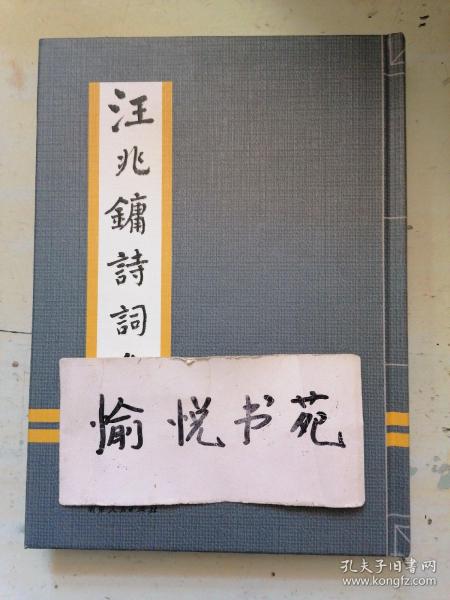 汪兆鏞詩詞
愉悦书苑
孔夫子旧书网
www.kongfz.com